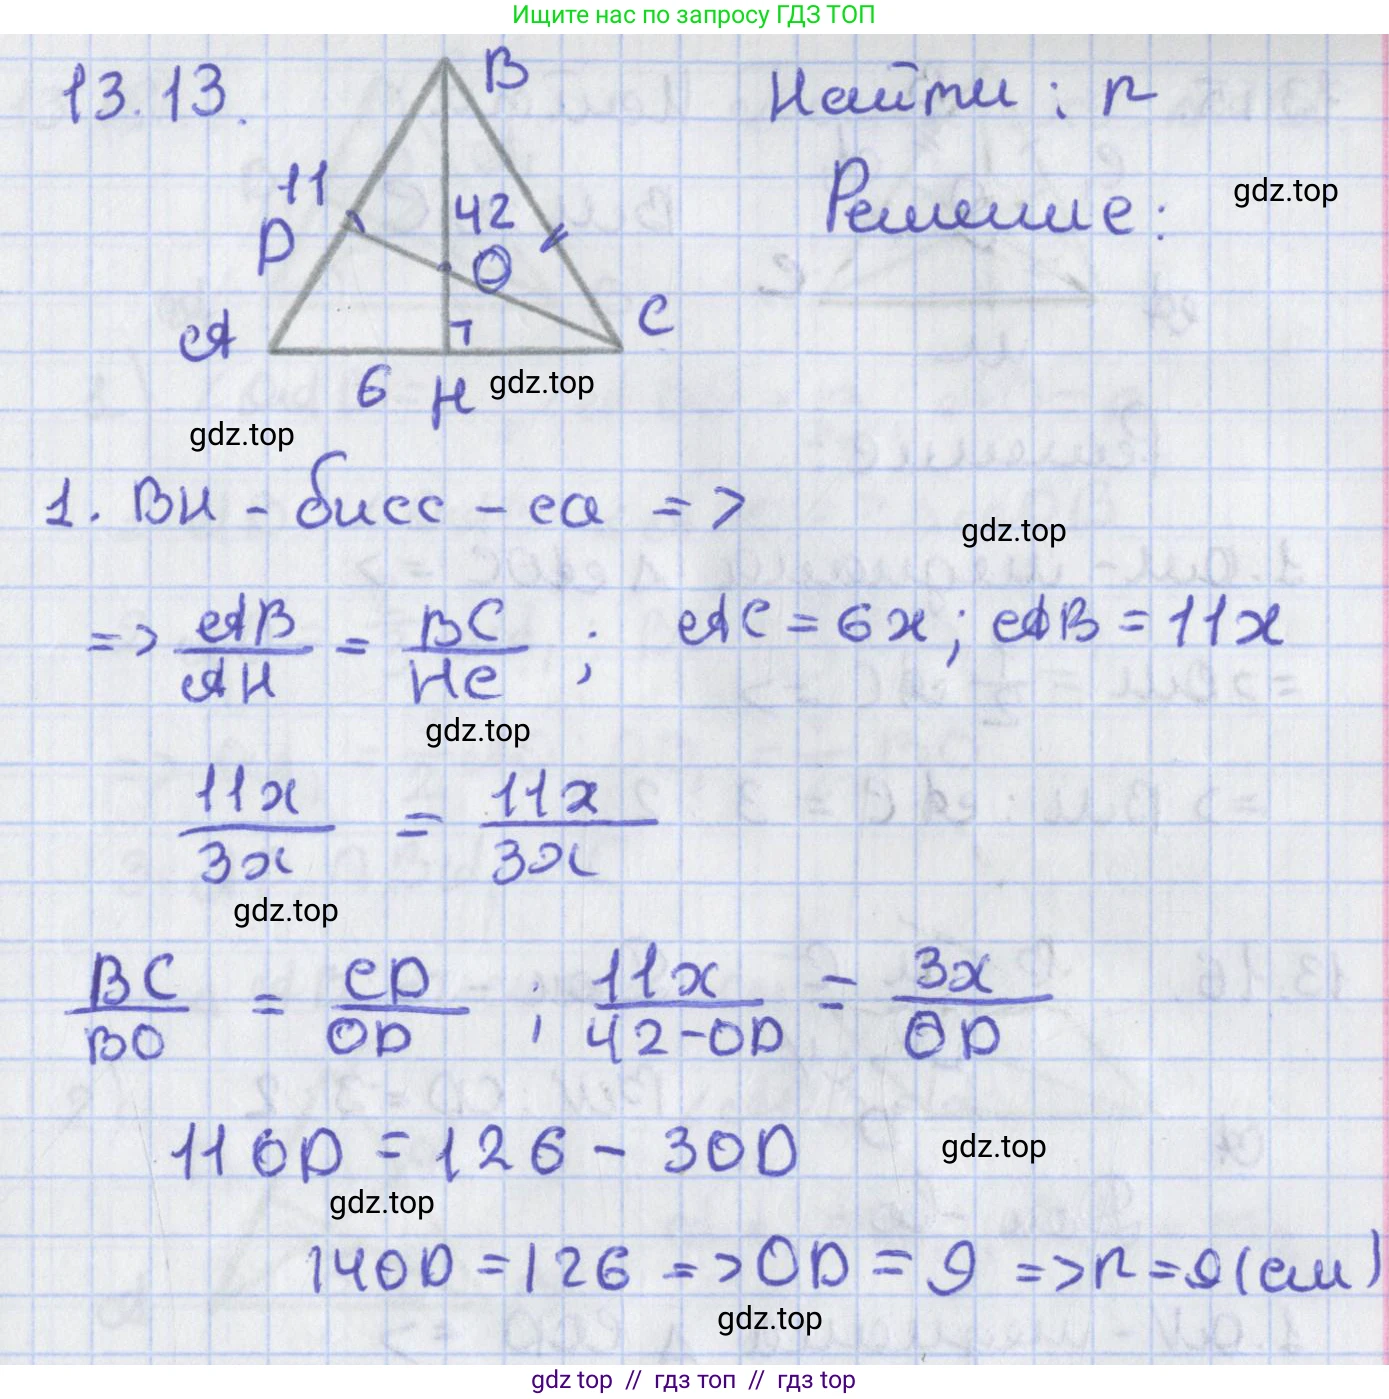 Ищите нас по запросу ГДЗ ТОП
13.13.
B
Найти : r
11
42
Решение :
gdz.top
D
O
A
C
6
H
gdz.top
gdz.top
1. BH - бисс - са =>
gdz.top
=> AB/AH = BC/HC ; AC = 6x; AB = 11x
gdz.top
11x/3x = 11x/3x
gdz.top
BC/BO = CD/OD ; 11x/42-OD = 3x/OD
11OD = 126 - 3OD
gdz.top
gdz.top
14OD = 126 => OD = 9 => r = 9 (см)
gdz.top
gdz top // гдз топ // гдз top